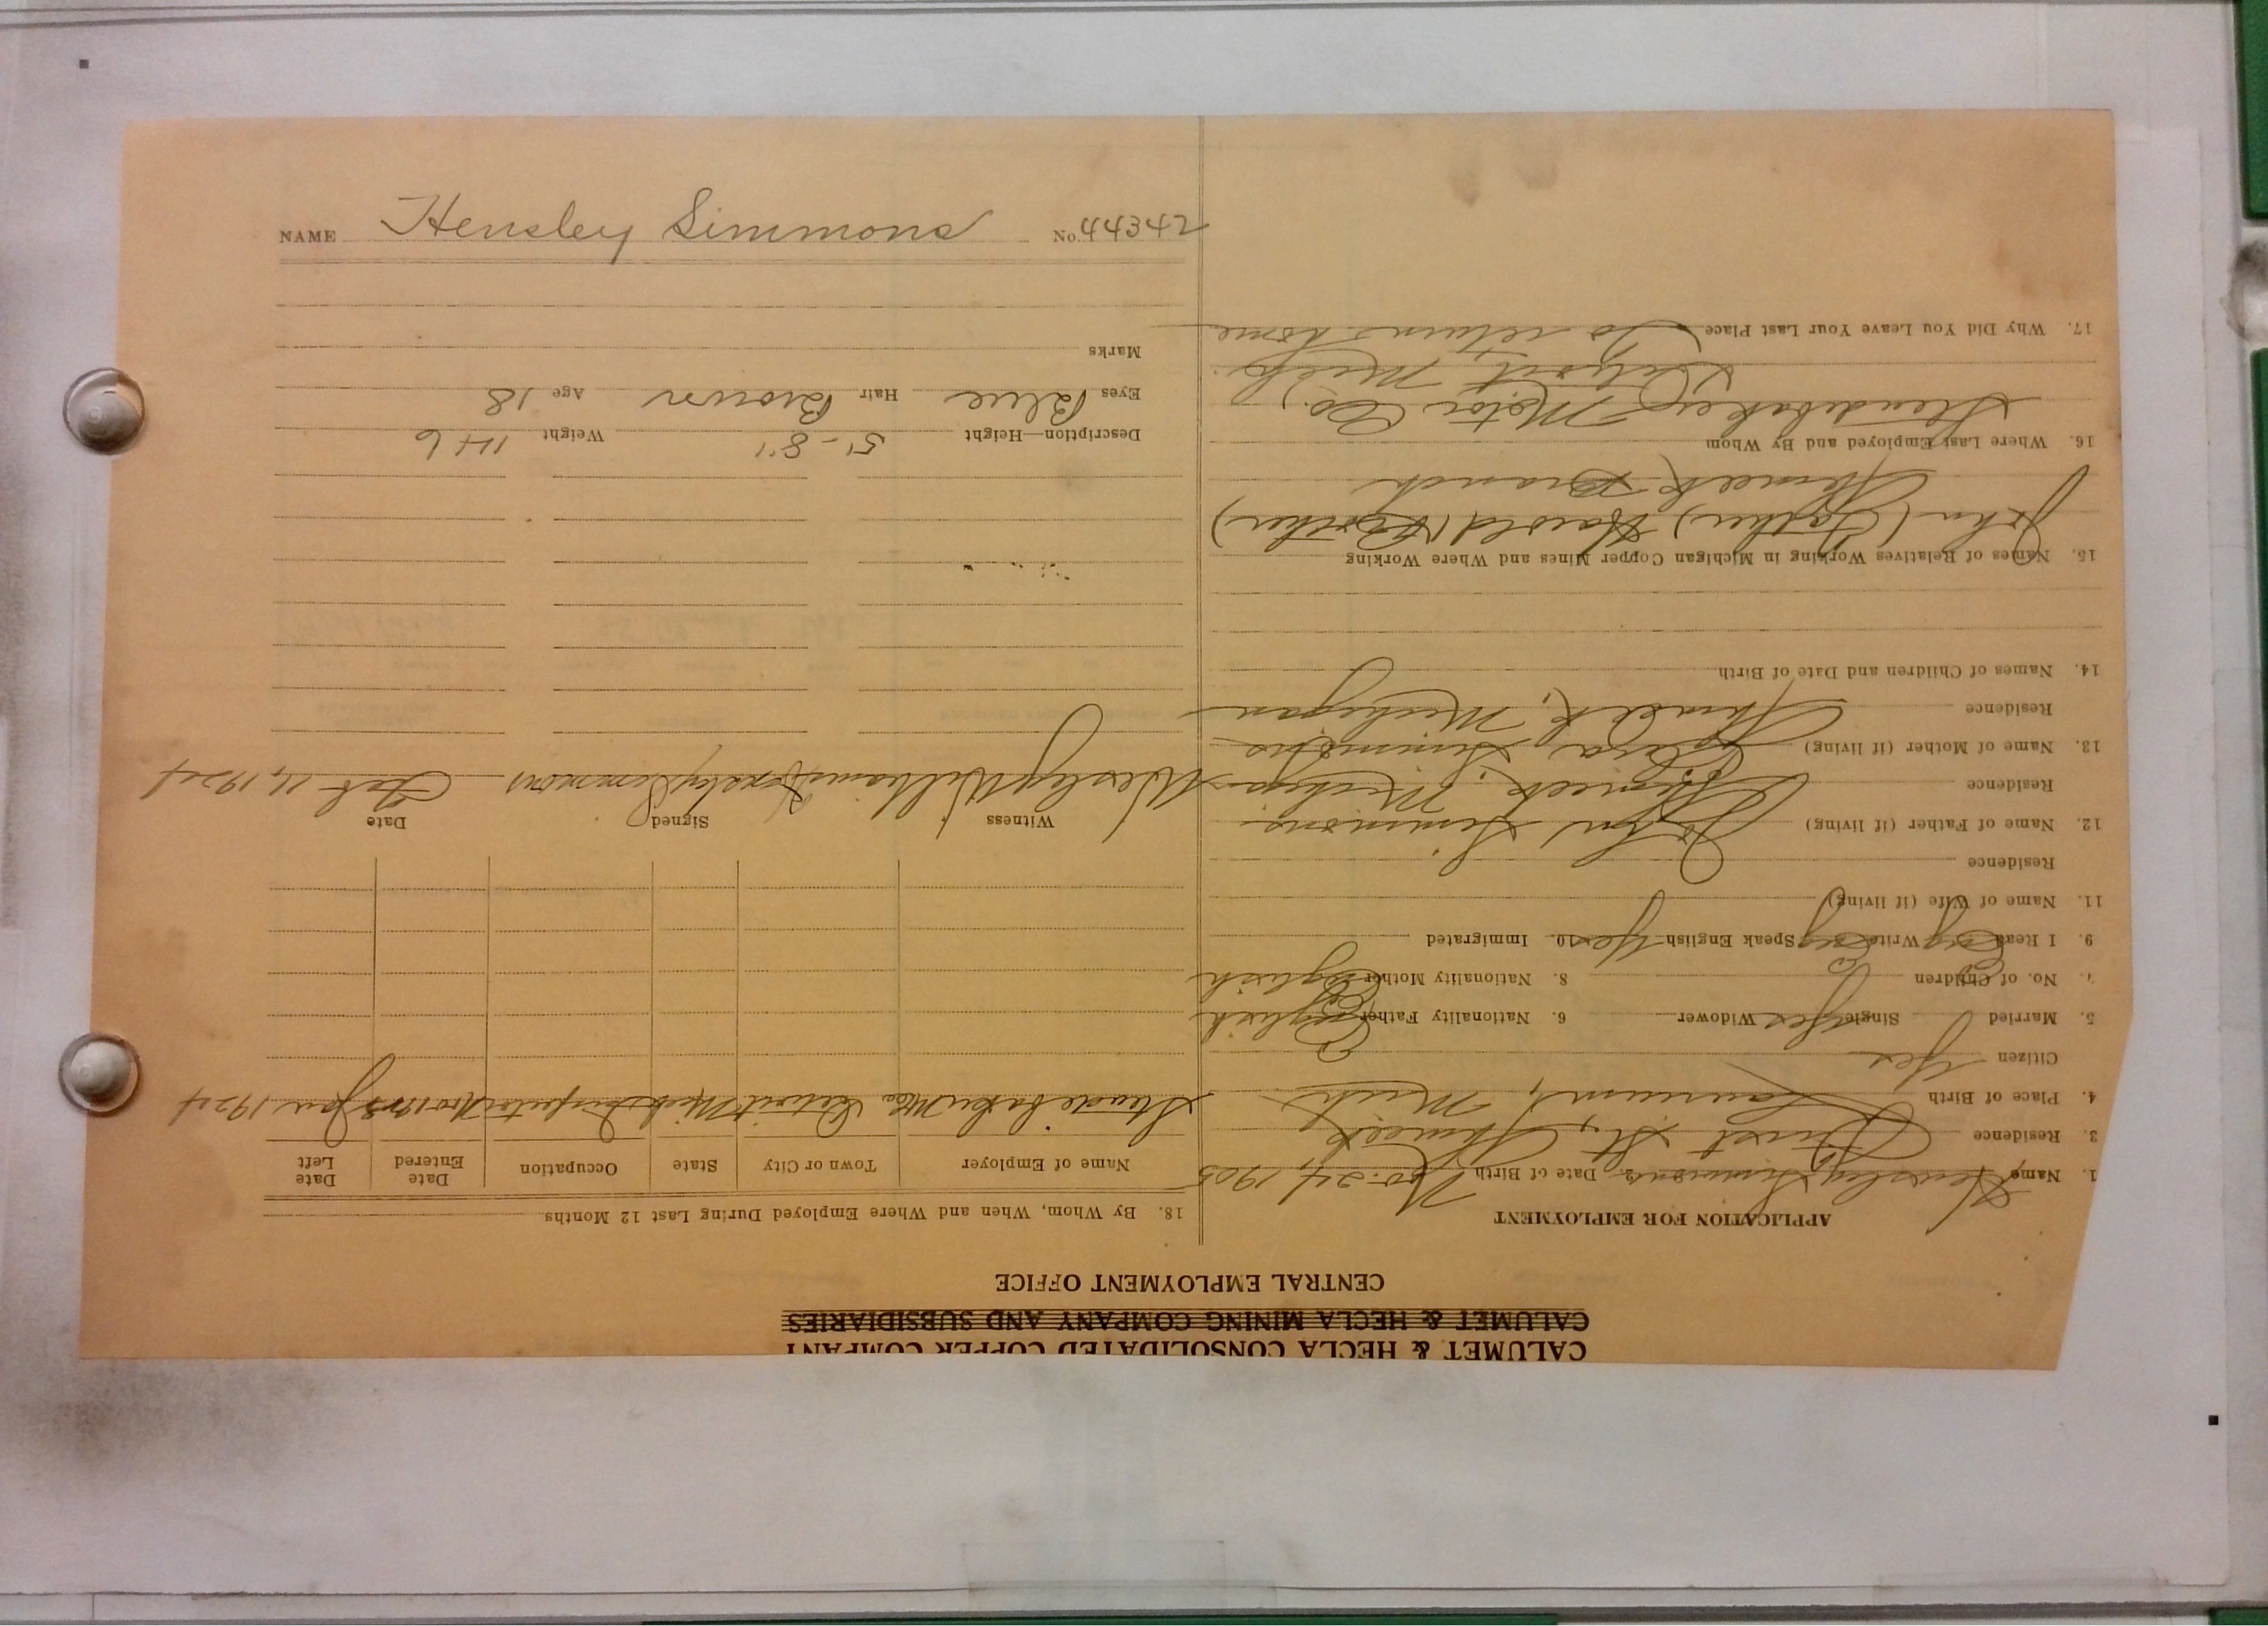 NAME Hensley Simmons No. 44342
CALUMET & HECLA CONSOLIDATED COPPER COMPANY
CALUMET & HECLA MINING COMPANY AND SUBSIDIARIES
CENTRAL EMPLOYMENT OFFICE
APPLICATION FOR EMPLOYMENT
1. Name Hensley Simmons 2. Date of Birth Nov. 24, 1905
3. Residence First St., Ahmeek
4. Place of Birth Laurium, Mich
Citizen Yes
5. Married Single Yes Widower 6. Nationality Father English
7. No. of Children 8. Nationality Mother English
9. I Read Eng Write Eng Speak English Yes 10. Immigrated
11. Name of Wife (if living)
Residence
12. Name of Father (if living) John Simmons
Residence Ahmeek, Michigan
13. Name of Mother (if living) Clara Simmons
Residence Ahmeek, Michigan
14. Names of Children and Date of Birth
15. Names of Relatives Working in Michigan Copper Mines and Where Working
John (Father) Harold (Brother)
Ahmeek Branch
16. Where Last Employed and By Whom
Studebaker Motor Co.
Detroit, Mich.
17. Why Did You Leave Your Last Place To return home
18. By Whom, When and Where Employed During Last 12 Months
Name of Employer Town or City State Occupation Date Entered Date Left
Studebaker Detroit Mich Inspector Nov 1923 Jan 1924
Witness Signed Date
Wesley Williams Hensley Simmons Feb 11, 1924
Description—Height 5'-8" Weight 146
Eyes Blue Hair Brown Age 18
Marks